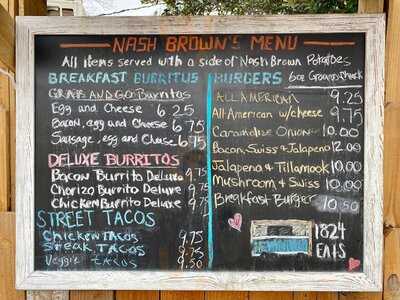 NASH BROWN'S MENU
All items served with a side of Nash Brown Potatoes
BREAKFAST BURRITOS
GRAB AND GO Burritos
Egg and Cheese 6.25
Bacon, egg and Cheese 6.75
Sausage, egg and Cheese 6.75
DELUXE BURRITOS
Bacon Burrito Deluxe 9.75
Chorizo Burrito Deluxe 9.75
Chicken Burrito Deluxe 9.75
STREET TACOS
Chicken TACOS 9.75
Steak TACOS 9.75
Veggie tacos 9.50
BURGERS 6oz Ground Chuck
ALL AMERICAN 9.25
All American w/cheese 9.75
Caramelize Onion 10.00
Bacon, Swiss & Jalapeno 12.00
Jalapeno & Tillamook 10.00
Mushroom & Swiss 10.00
Breakfast Burger 10.50
1824
EATS